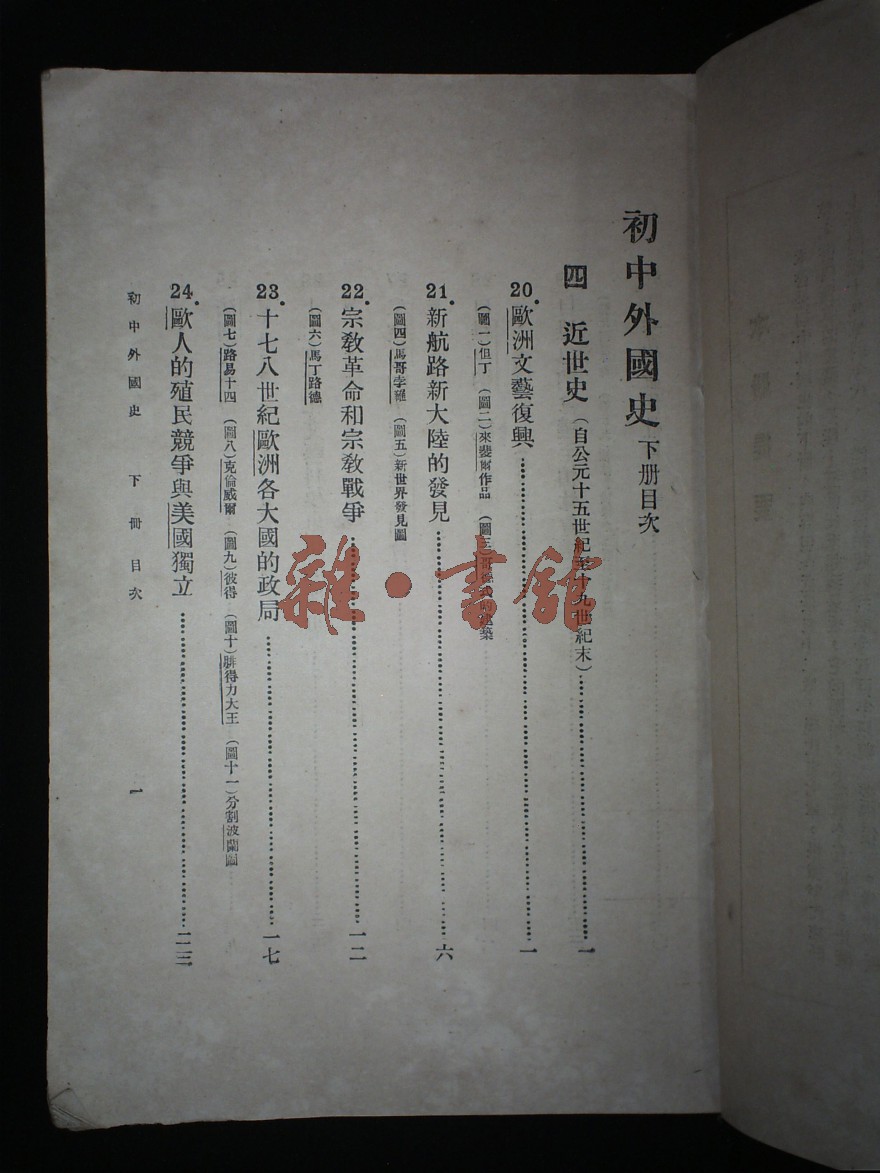 初中外國史 下册目次
四 近世史(自公元十五世紀至十九世紀末)……一
20.歐洲文藝復興……一
(圖一)但丁 (圖二)來斐爾作品 (圖三)哥德式的建築
21.新航路新大陸的發見……六
(圖四)馬哥孛羅 (圖五)新世界發見圖
22.宗教革命和宗教戰爭……一二
(圖六)馬丁路德
23.十七八世紀歐洲各大國的政局……一七
(圖七)路易十四 (圖八)克倫威爾 (圖九)彼得 (圖十)腓得力大王 (圖十一)分割波蘭圖
24.歐人的殖民競爭與美國獨立……二三
初中外國史 下冊目次 一
雜·書館